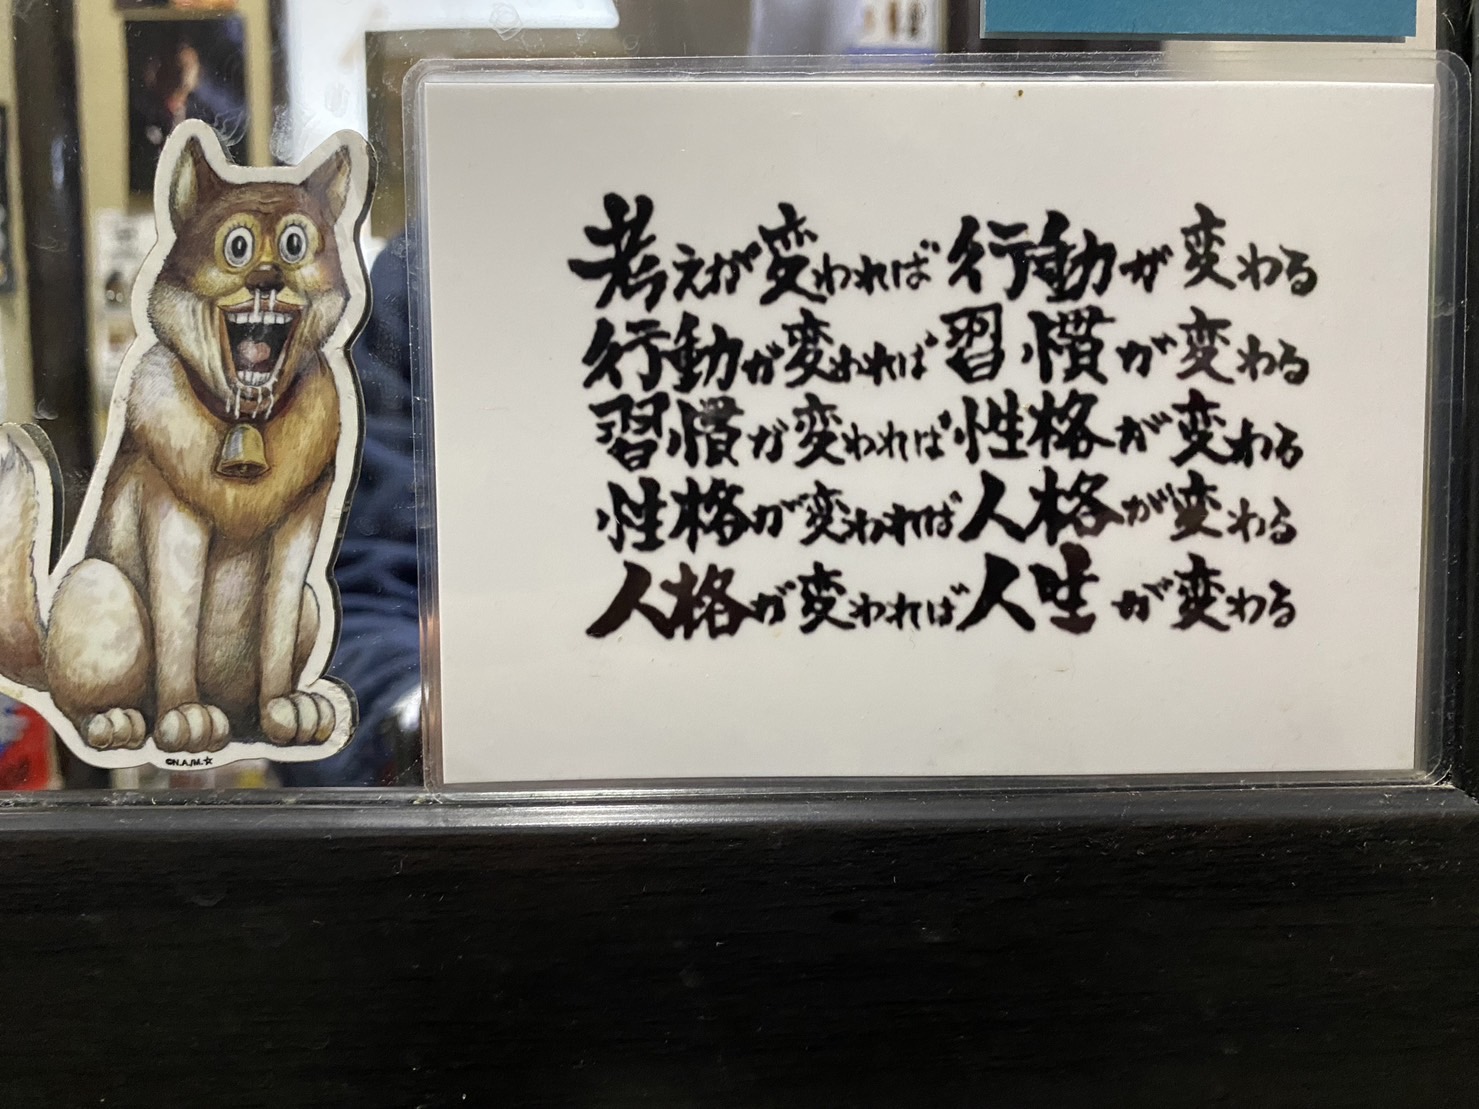 考えが変われば行動が変わる
行動が変われば習慣が変わる
習慣が変われば性格が変わる
性格が変われば人格が変わる
人格が変われば人生が変わる
©N.A./M.☆